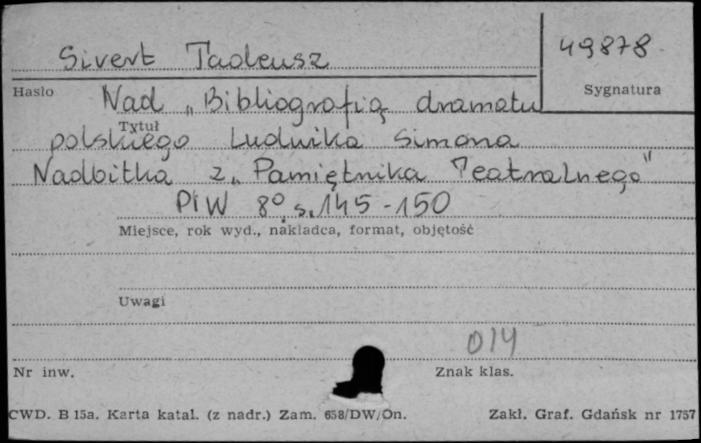 Sivert Tadeusz
49878
Hasło
Sygnatura
Nad „Bibliografią dramatu
Tytuł
polskiego Ludwika Simona
Nadbitka z „Pamiętnika Teatralnego"
PIW 8° s. 145-150
Miejsce, rok wyd., nakładca, format, objętość
Uwagi
014
Nr inw.
Znak klas.
CWD. B 15a. Karta katal. (z nadr.) Zam. 658/DW/On.
Zakł. Graf. Gdańsk nr 1757